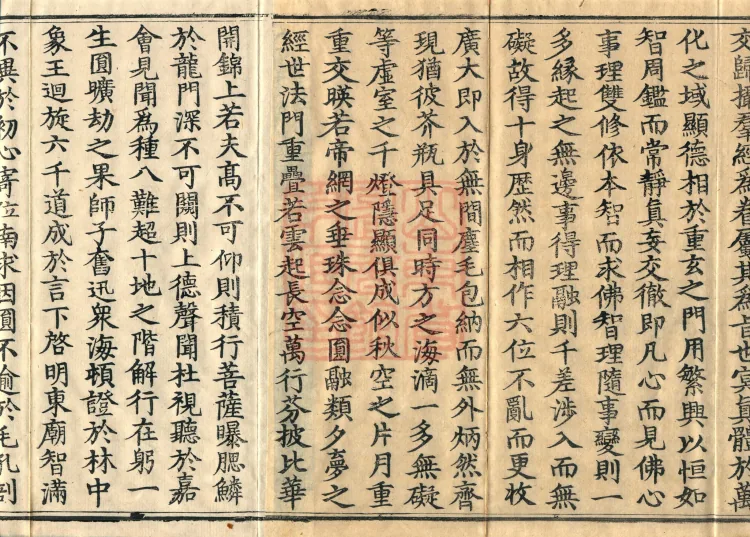 交歸攝羣經爲眷屬其爲旨也冥眞體於萬
化之域顯德相於重玄之門用繁興以恒如
智周鑑而常靜眞妄交徹即凡心而見佛心
事理雙修依本智而求佛智理隨事變則一
多緣起之無邊事得理融則千差涉入而無
礙故得十身歴然而相作六位不亂而更收
廣大即入於無間塵毛包納而無外炳然齊
現猶彼芥瓶具足同時方之海滴一多無礙
等虛室之千燈隱顯俱成似秋空之片月重
重交暎若帝網之垂珠念念圓融類夕夢之
經世法門重疊若雲起長空萬行芬披比華
開錦上若夫髙不可仰則積行菩薩曝腮鱗
於龍門深不可闚則上德聲聞杜視聽於嘉
會見聞爲種八難超十地之階解行在躬一
生圓曠劫之果師子奮迅衆海頓證於林中
象王迴旋六千道成於言下啓明東廟智滿
不異於初心寄位南求因圓不踰於毛孔剖